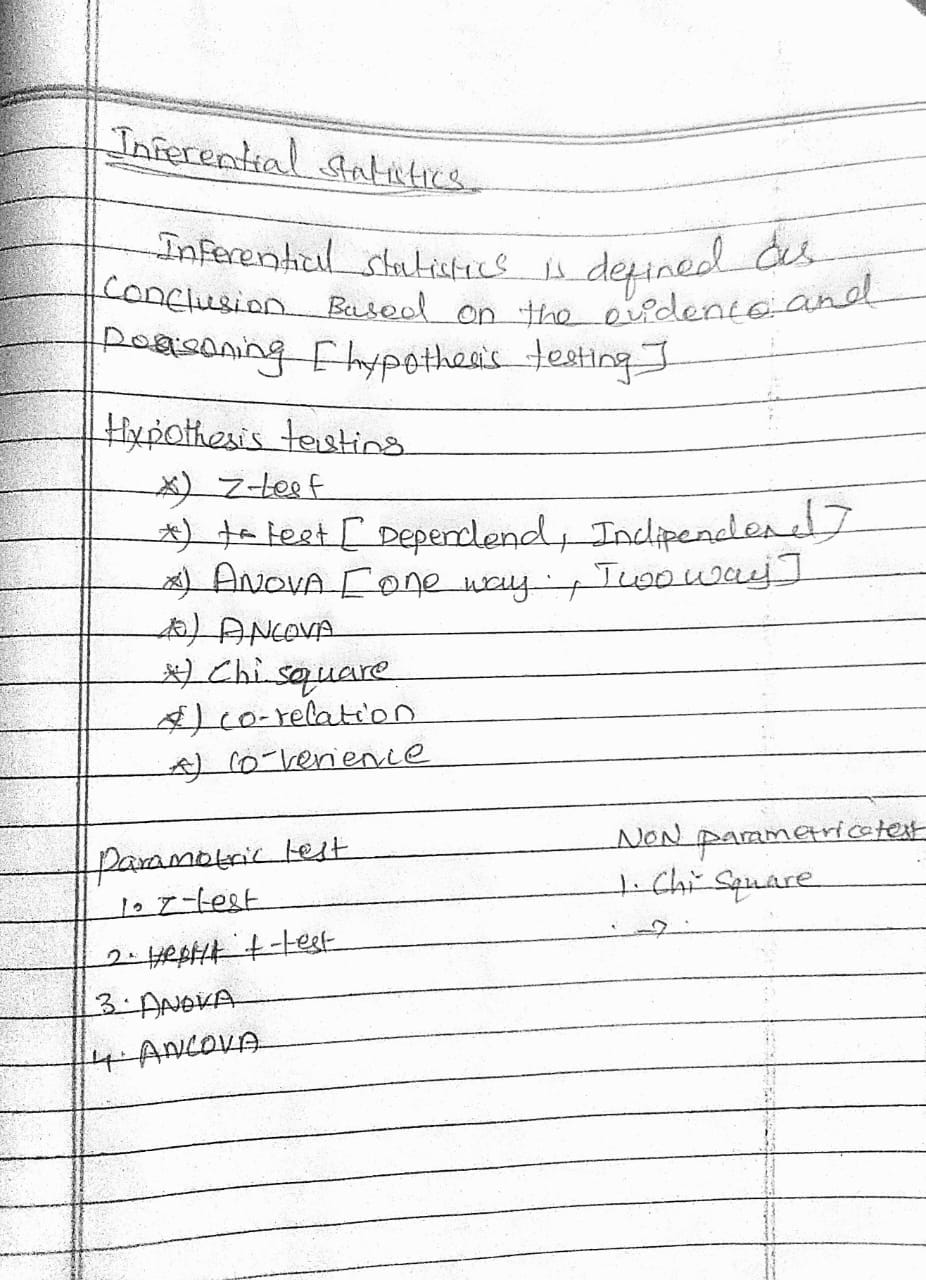 Inferential statistics
Inferential statistics is defined as
Conclusion Based on the evidence and
Reasoning [hypothesis testing]
Hypothesis teisting
*) Z-test
*) t-test [Dependend, Indipendend]
*) ANOVA [one way, Two way]
*) ANCOVA
*) Chi square
*) co-relation
*) co-verience
Parametric test
NON parametric test
1. z-test
1. Chi-Square
2. t-test
→
3. ANOVA
4. ANCOVA